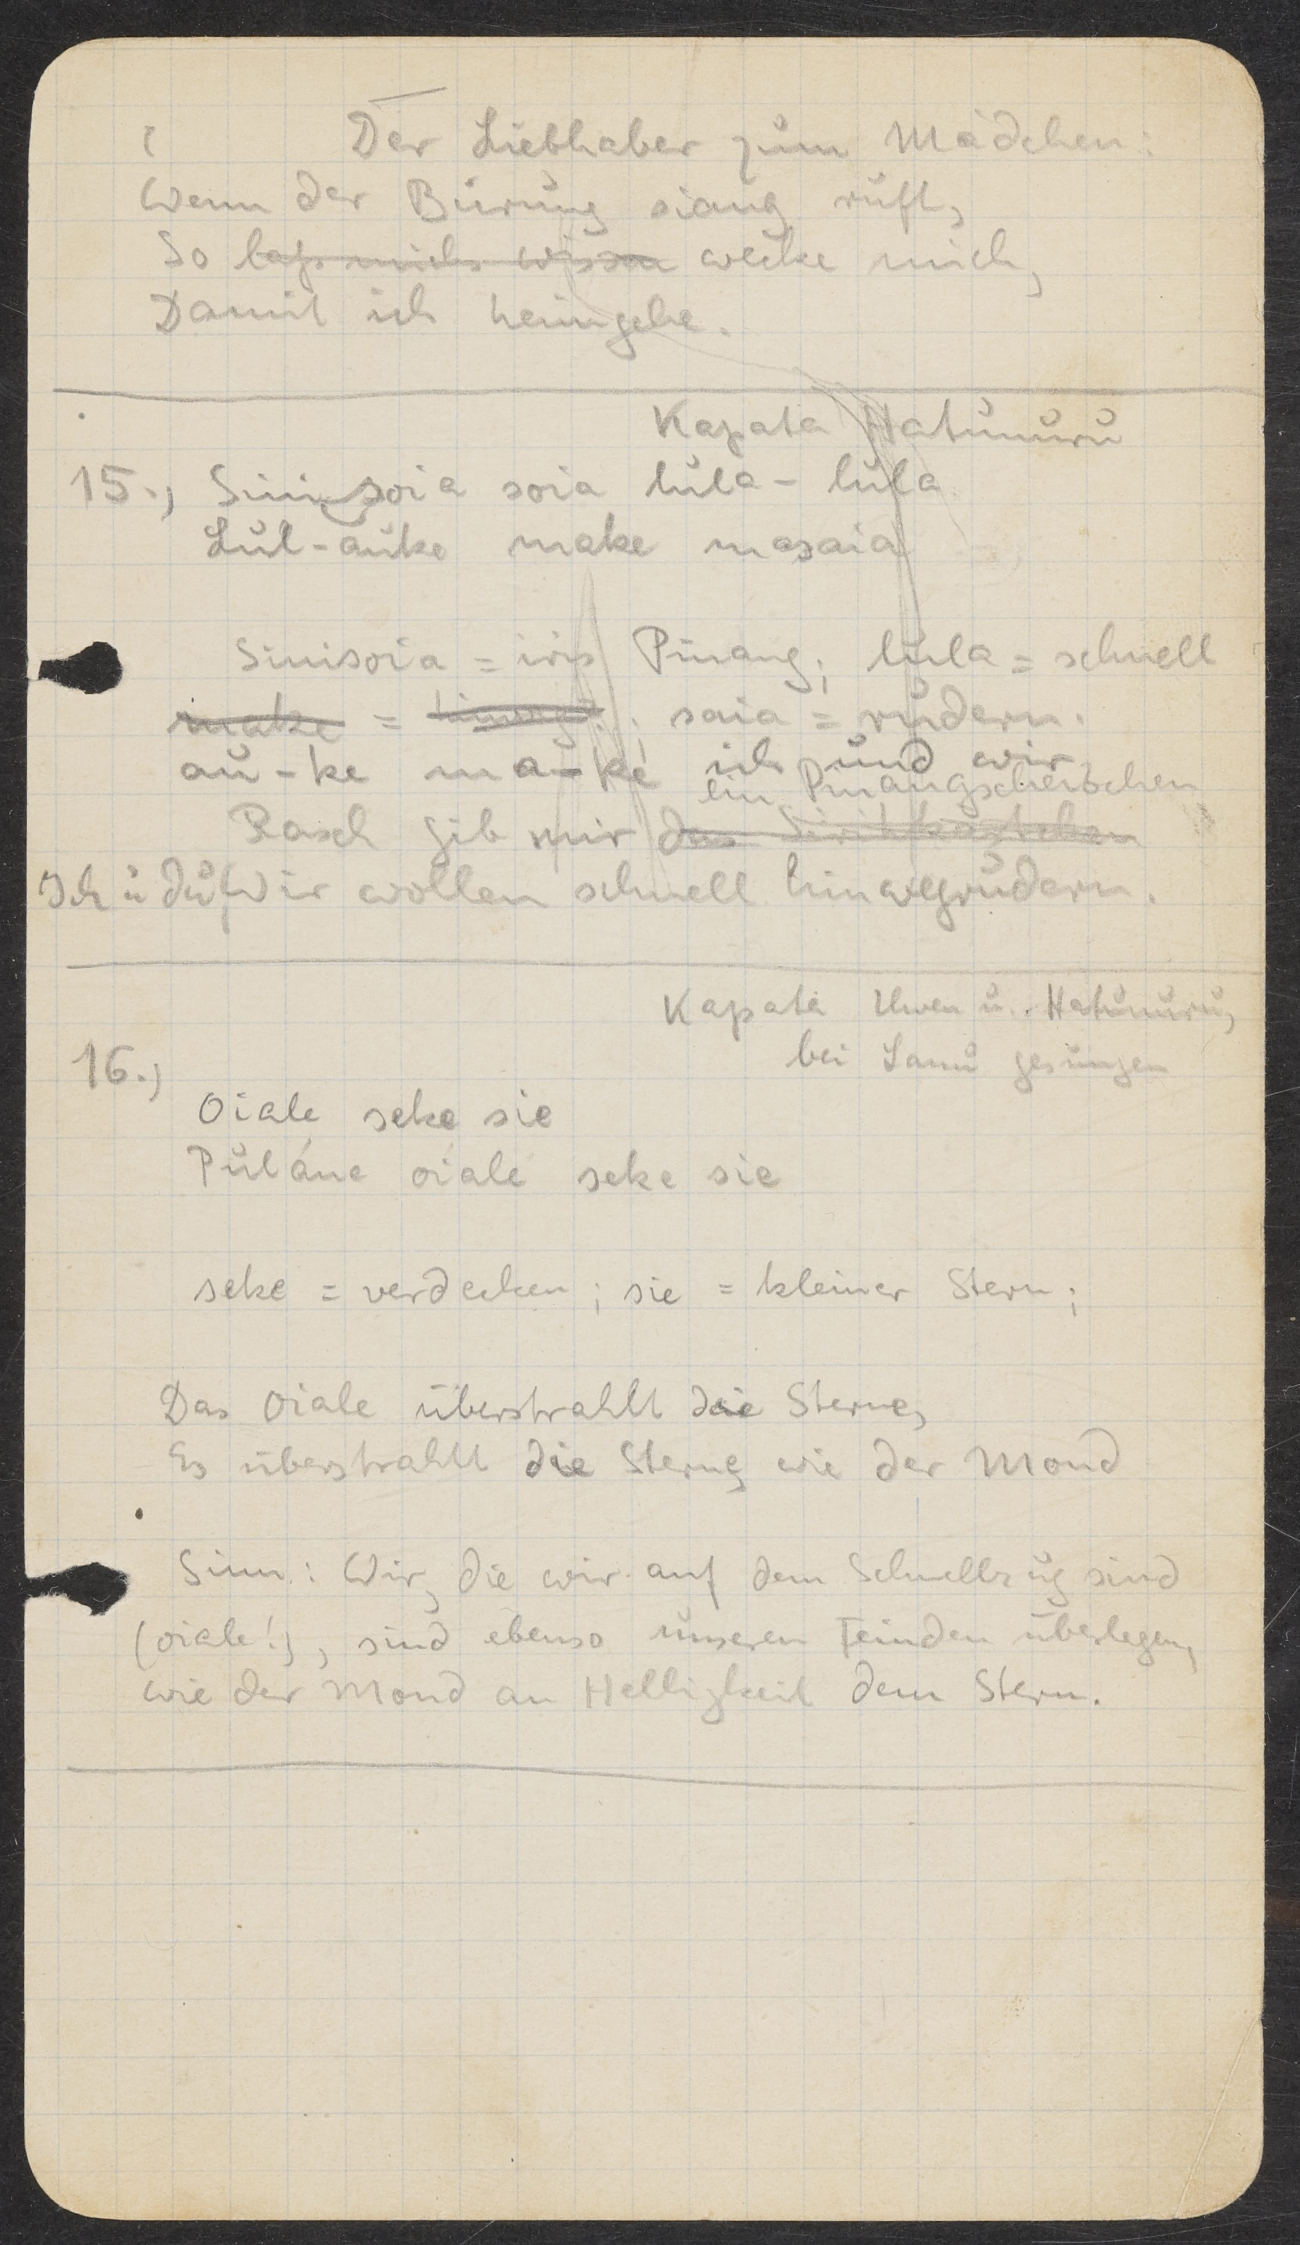 Der Liebhaber zum Mädchen:
Wenn der Burung siang ruft,
So lass mich wissen wecke mich,
Damit ich heimgehe.
Kapata Hatunuru
15.) Sini soia soia lula - lula
Lul-auke make masaia
Sinisoia = iris Pinang; lula = schnell
make = ; saia = rudern.
au-ke ma-ke ich und wir
ein Pinangscheibchen
Rasch gib mir das Sirihkästchen
Ich u du, Wir wollen schnell hinwegrudern.
Kapata Uwen u. Hatunuru,
bei Lanu gesungen
16.)
Oiale seke sie
Puláne oiale seke sie
seke = verdecken; sie = kleiner Stern;
Das Oiale überstrahlt die Sterne,
Es überstrahlt die Sterne, wie der Mond
Sinn: Wir, die wir auf dem Schnellzug sind
(oiale!), sind ebenso unseren Feinden überlegen,
wie der Mond an Helligkeit dem Stern.